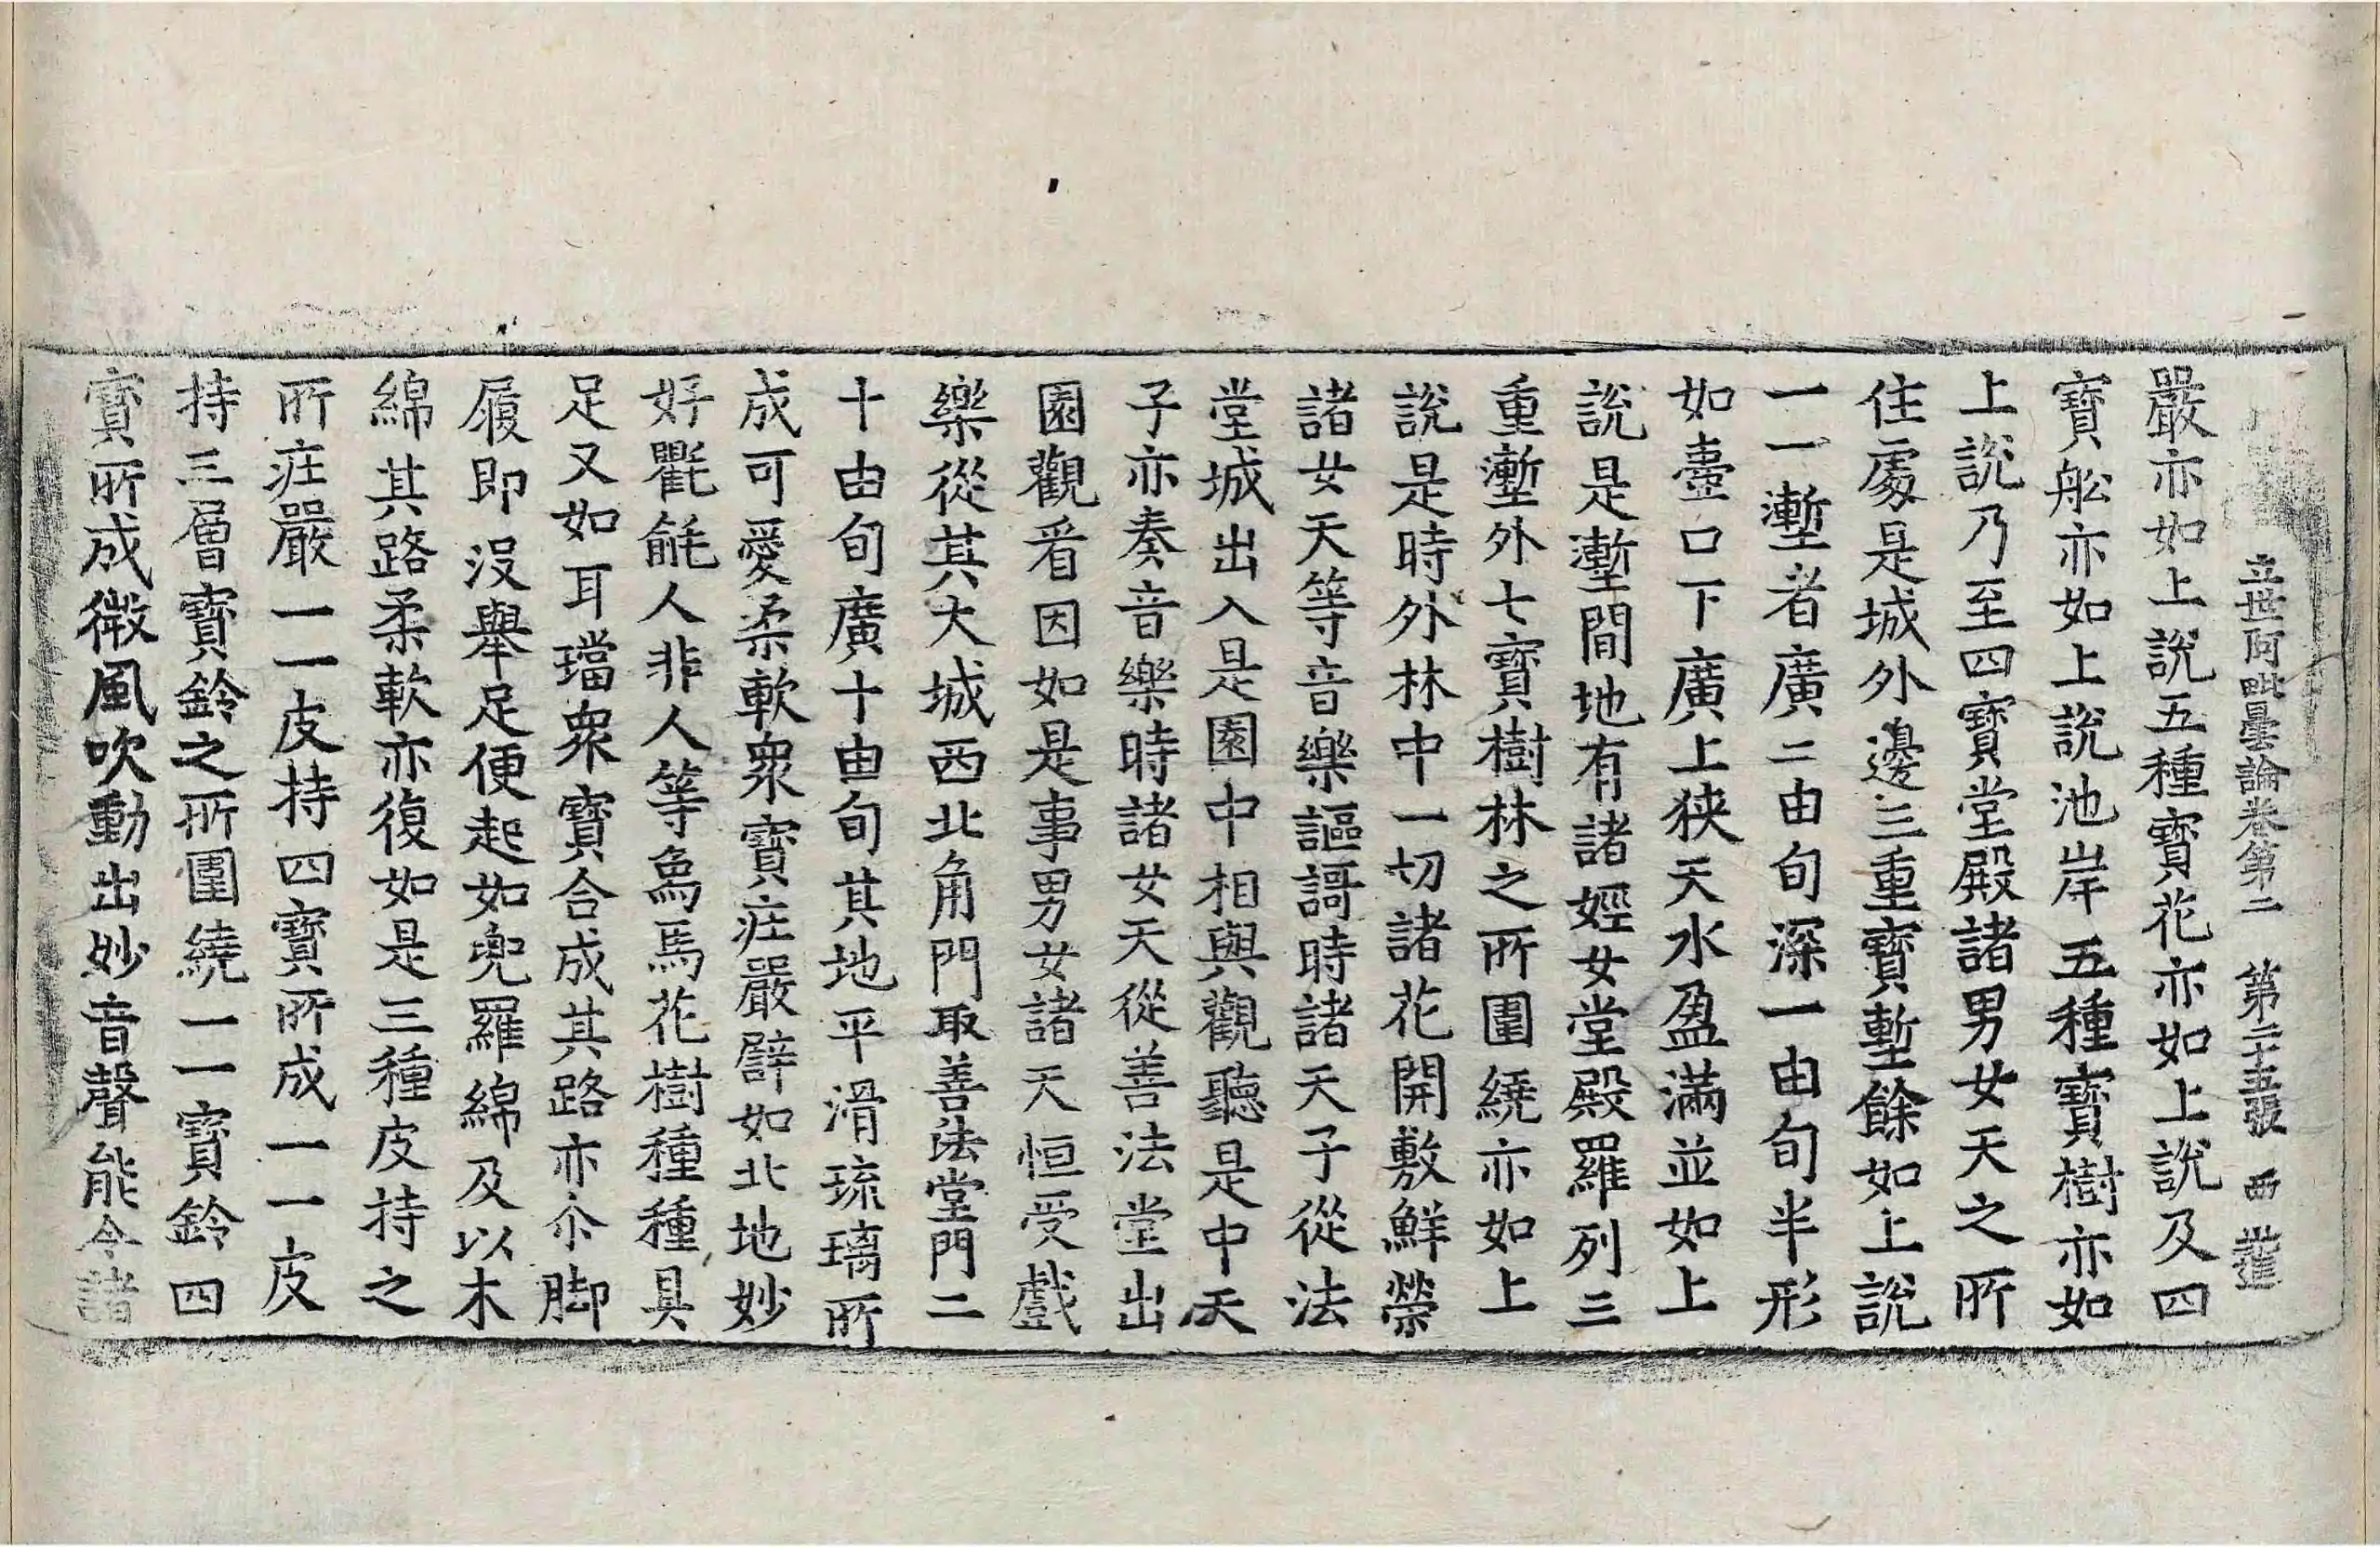 立世阿毗曇論卷第二 第二十五張 西
嚴亦如上說五種寶花亦如上說及四
寶舩亦如上說池岸五種寶樹亦如
上說乃至四寶堂殿諸男女天之所
住處是城外邊三重寶塹餘如上說
一一塹者廣二由旬深一由旬半形
如壼口下廣上狹天水盈滿並如上
說是塹間地有諸婬女堂殿羅列三
重塹外七寶樹林之所圍繞亦如上
說是時外林中一切諸花開敷鮮榮
諸女天等音樂謳謌時諸天子從法
堂城出入是園中相與觀聽是中天
子亦奏音樂時諸女天從善法堂出
園觀看因如是事男女諸天恒受戲
樂從其大城西北角門取善法堂門二
十由旬廣十由旬其地平滑琉璃所
成可愛柔軟衆寶庄嚴譬如北地妙
好氍毹人非人等象馬花樹種種具
足又如耳璫衆寶合成其路亦尒脚
履即沒舉足便起如兜羅綿及以木
綿其路柔軟亦復如是三種皮持之
所庄嚴一一皮持四寶所成一一皮
持三層寶鈴之所圍繞一一寶鈴四
寶所成微風吹動出妙音聲能令諸